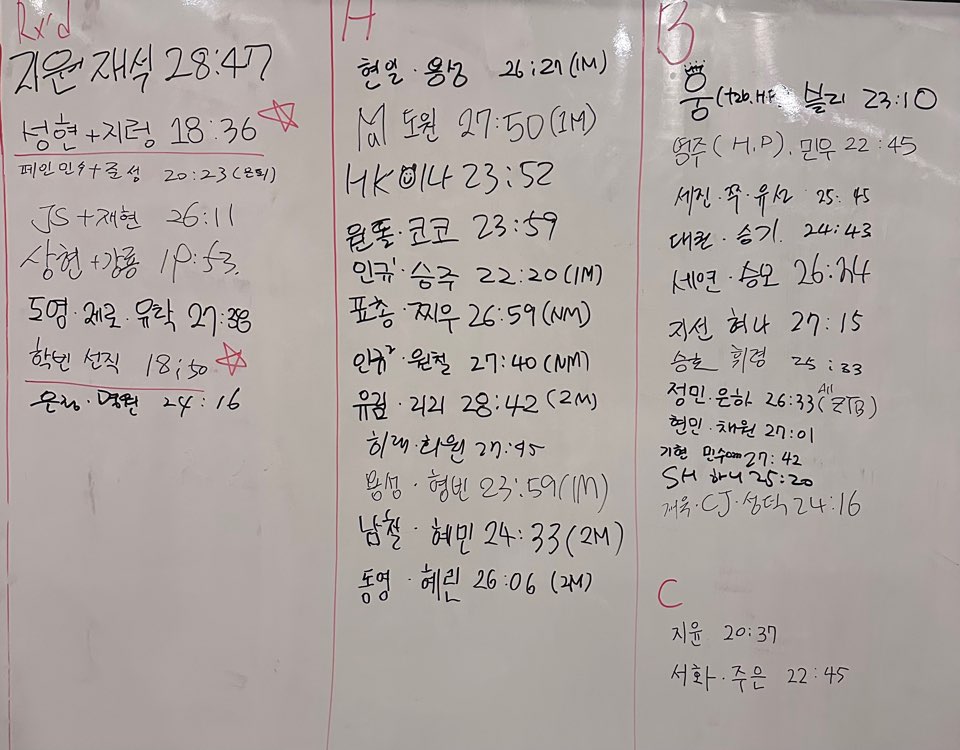 Rx'd
지원 재석 28:47
성현+지령 18:36
20:23
JS+재현 26:11
상현+강룡 19:53
도영·제로·유탁 27:38
학빈 선직 18:50
24:16
H
현일·용성 26:27(1M)
도원 27:50(1M)
HK 이나 23:52
원똘·코코 23:59
인규¹·승주 22:20(1M)
표총·찌우 26:59(NM)
인규²·원철 27:40(NM)
유림·리리 28:42(2M)
화원 27:45
용성·형빈 23:59(1M)
남철·혜민 24:33(2M)
동영·혜린 26:06(2M)
B
웅 블리 23:10
영주(H.P). 민우 22:45
세진·쭉·유선 25:45
승기. 24:43
세연·승모 26:24
지선 혀나 27:15
승호 휘령 25:33
정민·은하 26:33(All ZTB)
현민·채원 27:01
기현 민수 27:42
SH 하니 25:20
재욱·CJ·성덕 24:16
C
지윤 20:37
서화·주은 22:45